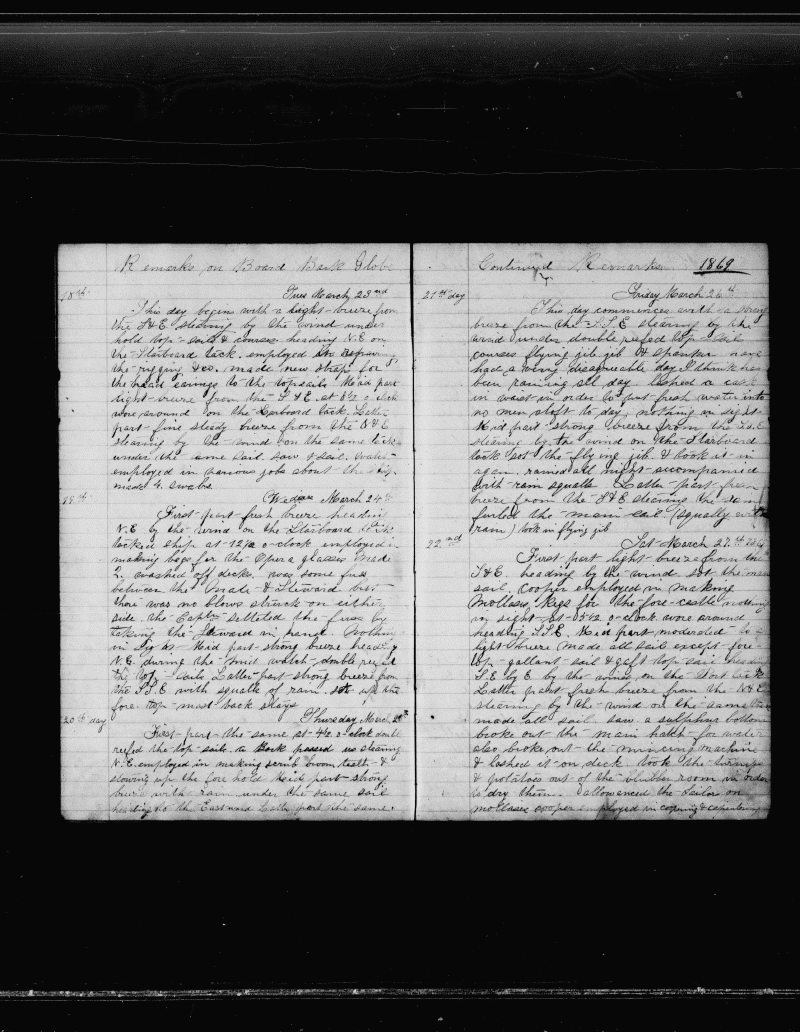 Remarks on Board Bark Globe
18th Tues March 23rd
This day begins with a light breeze from
the S & E steering by the wind under
hold top-sails & courses heading N.E on
the Starboard tack. employed in repairing
the rigging &co. made new strap for
the head earings to the topsails Mid part
light breeze from the S & E. at 8½ o clock
wore around on the Larboard tack. Latter
part fine steady breeze from the N & E
steering by the wind on the same tack
under the same sail. saw 1 sail.
employed in various jobs about the ship.
made 4. swabs.
19th Wednes March 24th
First part fresh breeze heading
N.E by the wind on the Starboard tack
tacked ship at 12½ o-clock employed in
making bags for the Opera glasses made
2. washed off decks. was some fuss
between the Mate & Steward but
there was no blows struck on either
side the Captn setteled the fuss by
taking the steward in hand. Nothing
in sight Mid part strong breeze heading
N.E. during the mid watch double reefed
the top sails Latter part strong breeze from
the S.S.E with squalls of rain. set up the
fore top-mast back stays
20th day Thursday March 25th
First part the same at 4½ o-clock double
reefed the top-sails. a Bark passed us steering
N.E. employed in making scrub broom teeth &
stowing up the fore hold Mid part strong
breeze with rain under the same sail
heading to the Eastward Latter part the same.
Continued Remarks 1869
21st day Friday March 26th
This day commences with a strong
breeze from the S.S.E steering by the
wind under double reefed top-sail
courses flying jib jib & spanker
had a very disagreeable day I think has
been raining all day. lashed a cask
in waist in order to put fresh water into
no men aloft to day, nothing in sight
Mid part strong breeze from the S.S.E
steering by the wind on the Starboard
tack set the flying jib & took it in
again. rained all night accompanied
with rain squalls Latter part fresh
breeze from the S & E steering the same
furled the main sail (squally with
rain) took in flying jib
22nd Sat March 27th 1869
First part light breeze from the
S & E. heading by the wind set the main
sail cooper employed in making
Mollases Kegs for the fore-castle nothing
in sight at 5½ o-clock wore around
heading S.S.E. Mid part moderated to a
light breeze made all sail except fore-
top-gallant-sail & gaft top sail heading
S.E by E. by the wind on the Port tack
Latter part fresh breeze from the N & E
steering by the wind on the same tack
made all sail saw a sulphur bottom
broke out the main hatch for water
also broke out the mincing machine
& lashed it on deck took the turnips
& potatoes out of the blubber room in order
to dry them. allowanced the Sailor on
mollases cooper employed in coopering & carpentering